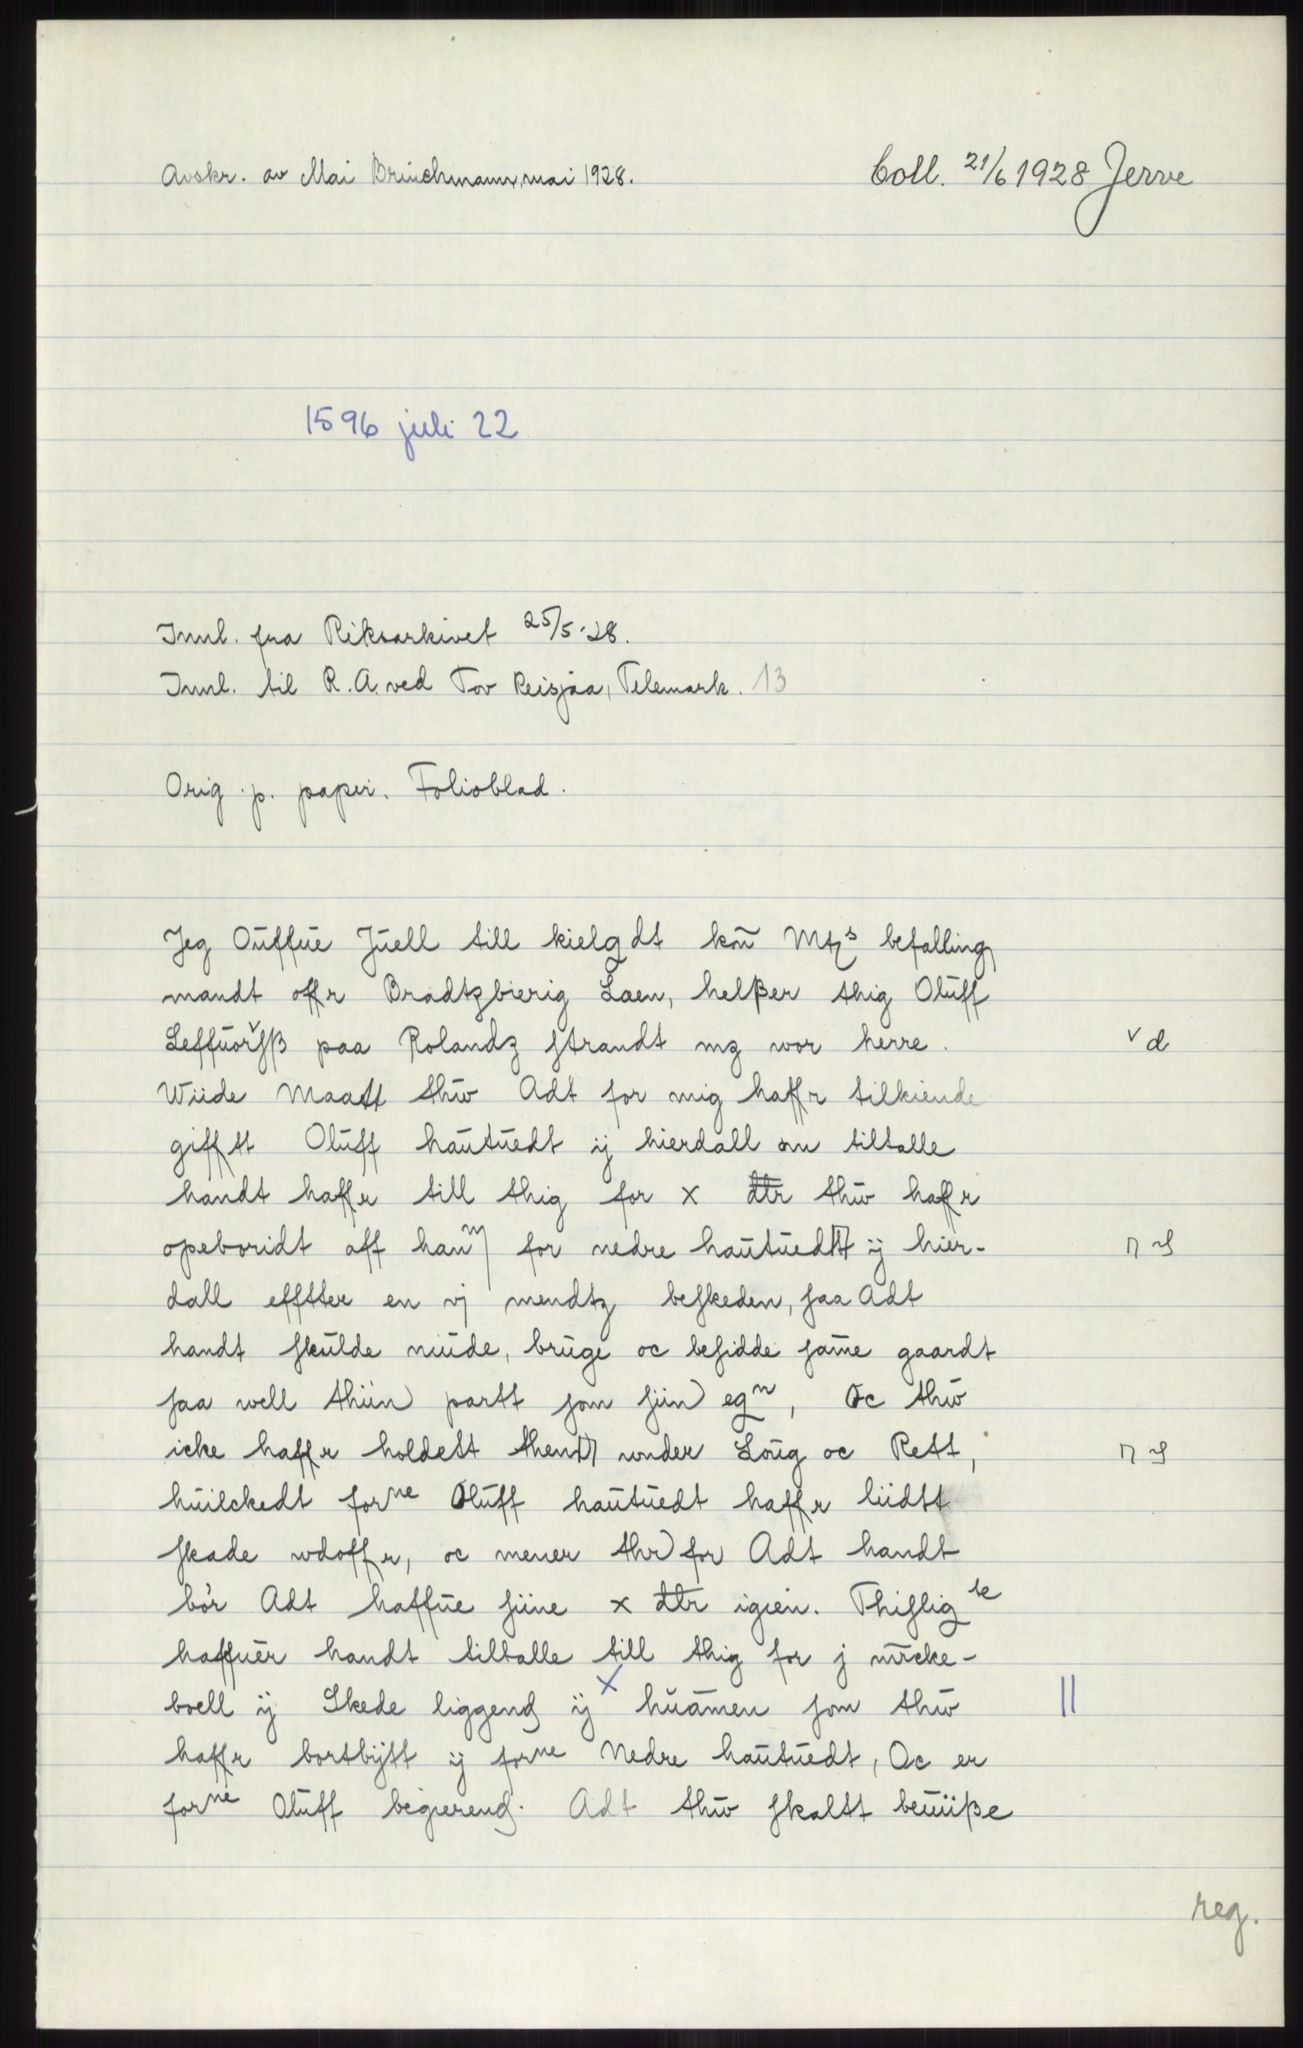 Avskr. av Mai Brinchmann, mai 1928.
Coll. 21/6 1928 Jerve
1596 juli 22
Innl. fra Riksarkivet 25/5-28.
Innl. til R.A. ved Tov Reisjaa, Telemark. 13
Orig. p. papir. Folioblad.
Jeg Ouffue Juell till kielgdt kon Mtz s befalling
mandt offr Bradtzbierig Laen, helßer thig Oluff
Leffuorſß paa Rolandz ſtrandt mz wor herre. v d
Wiide Maatt thw Adt for mig haffr tilkiende
gifftt Oluff hautuedt ij hierdall om tiltalle
handt haffr till thig for x dlr thw haffr
opeboridt aff hanm for nedre hautuedtt ij hier-
dall efftter en vj mendtz beſkeden, ſaa Adt
handt ſkulde niude, bruge oc beſidde ſame gaardt
ſaa well thiin partt ſom ſiin egn, Oc thw
icke haffr holdett thend under Loug oc Rett,
huilckedt forne Oluff hautuedt haffr liidtt
ſkade udoffr, oc mener thr for Adt handt
bör Adt haffue ſiine x dlr igien. Thiſligste
haffuer handt tiltalle till thig for j mrcke-
boell ij Skede liggend ij x huamen ſom thw ||
haffr bortbÿtt ij forne Nedre hautuedt, Oc er
forne Oluff begierend. Adt thw ſkaltt beuiiße
reg.